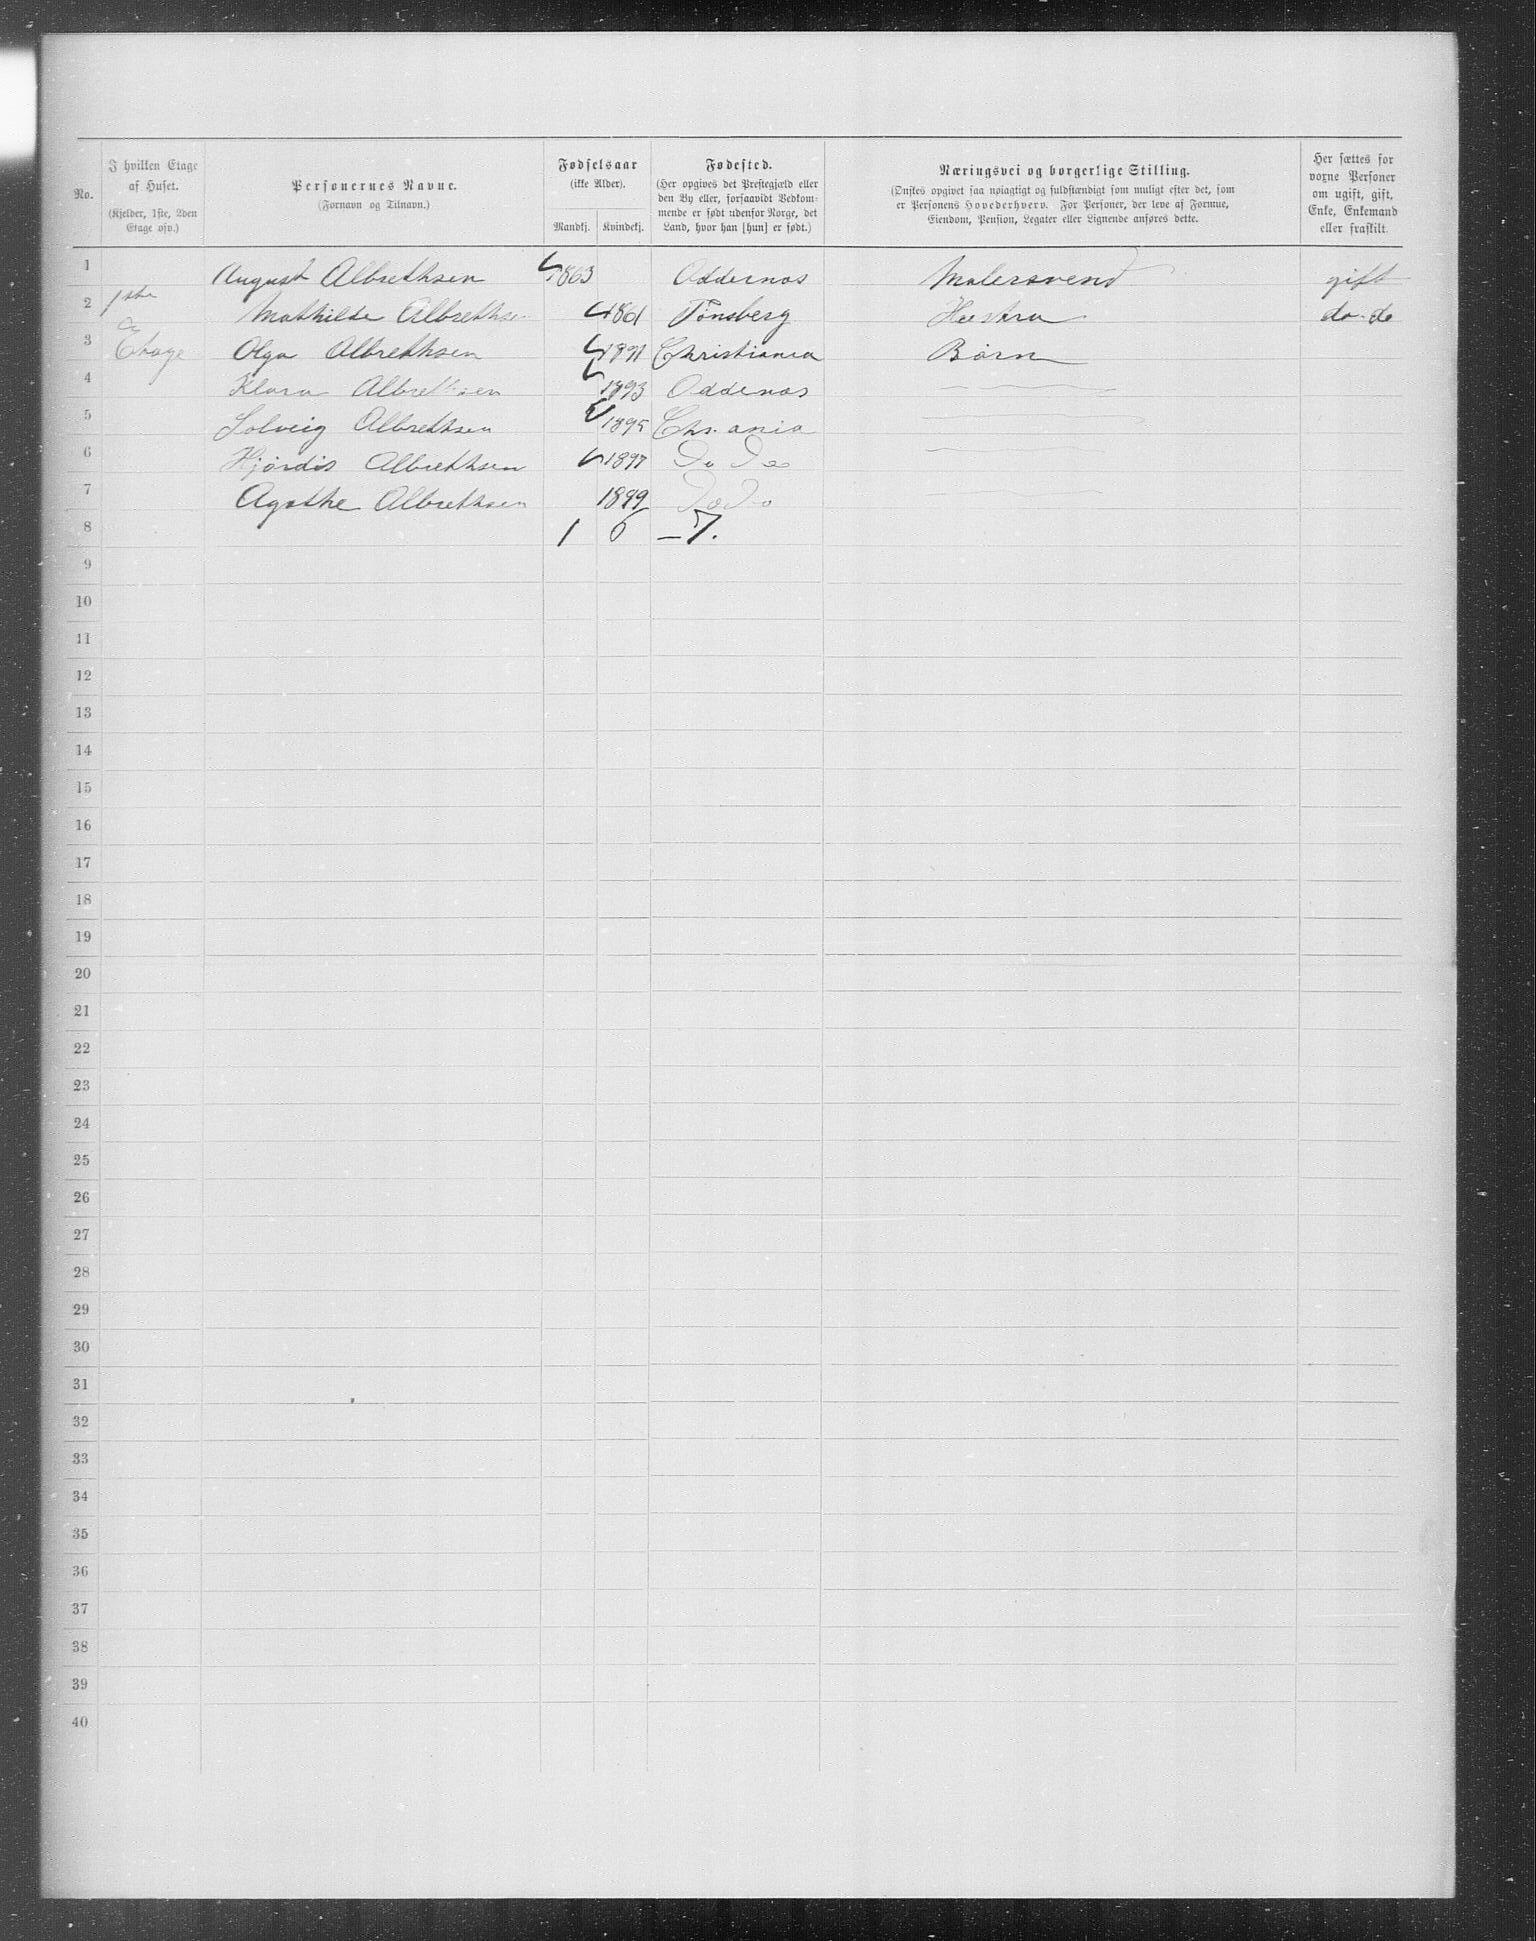 No.
I hvilken Etage af Huset. (Kjelder, 1ste, 2den Etage osv.)
Personernes Navne. (Fornavn og Tilnavn.)
Fødselsaar (ikke Alder). Mandkj. Kvindekj.
Fødested. (Her opgives det Prestegjæld eller den By eller, forsaavidt Vedkommende er født udenfor Norge, det Land, hvor han [hun] er født.)
Næringsvei og borgerlige Stilling. (Ønskes opgivet saa nøiagtigt og fuldstændigt som muligt efter det, som er Personens Hovederhverv. For Personer, der leve af Formue, Eiendom, Pension, Legater eller Lignende anføres dette.)
Her sættes for voxne Personer om ugift, gift, Enke, Enkemand eller fraskilt.
1 August Albrethsen 1863 Oddernæs Malersvend gift
2 1ste Mathilde Albrethsen 1861 Tönsberg Hustru do do
3 Etage Olga Albrethsen 1891 Christiania Börn
4 Klara Albrethsen 1893 Oddenæs
5 Solveig Albrethsen 1895 Chr.ania
6 Hjördis Albrethsen 1897 Do Do
7 Agathe Albrethsen 1899 Do Do
8 1 6 – 7.
9
10
11
12
13
14
15
16
17
18
19
20
21
22
23
24
25
26
27
28
29
30
31
32
33
34
35
36
37
38
39
40